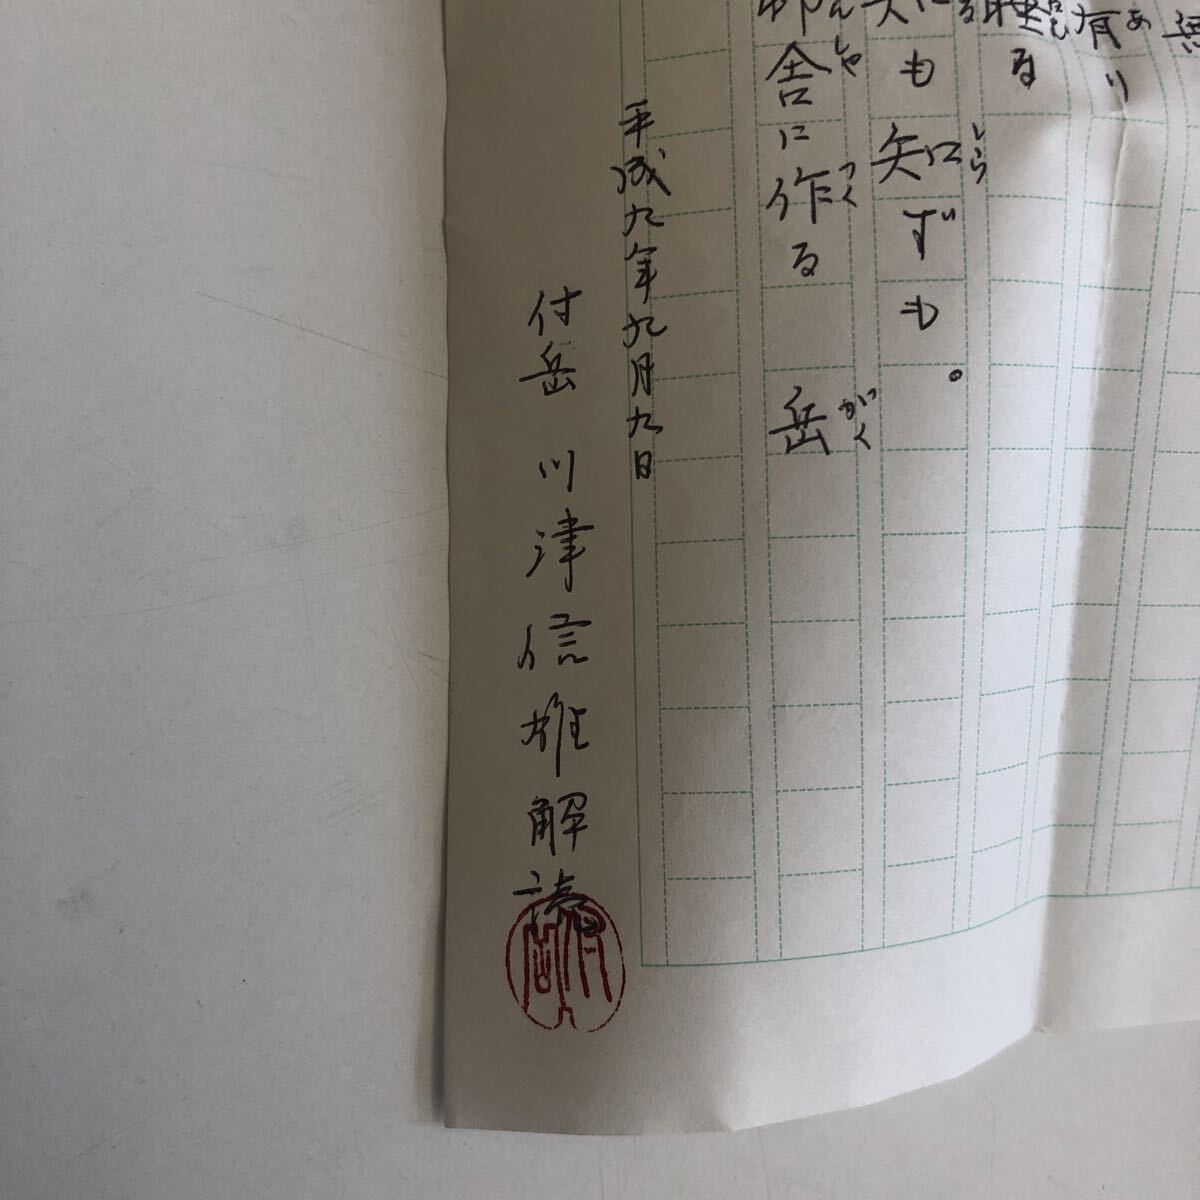 有り
極る
にも知ずも。
舎に作る　岳
平成九年九月九日
付岳　川津信雄解読